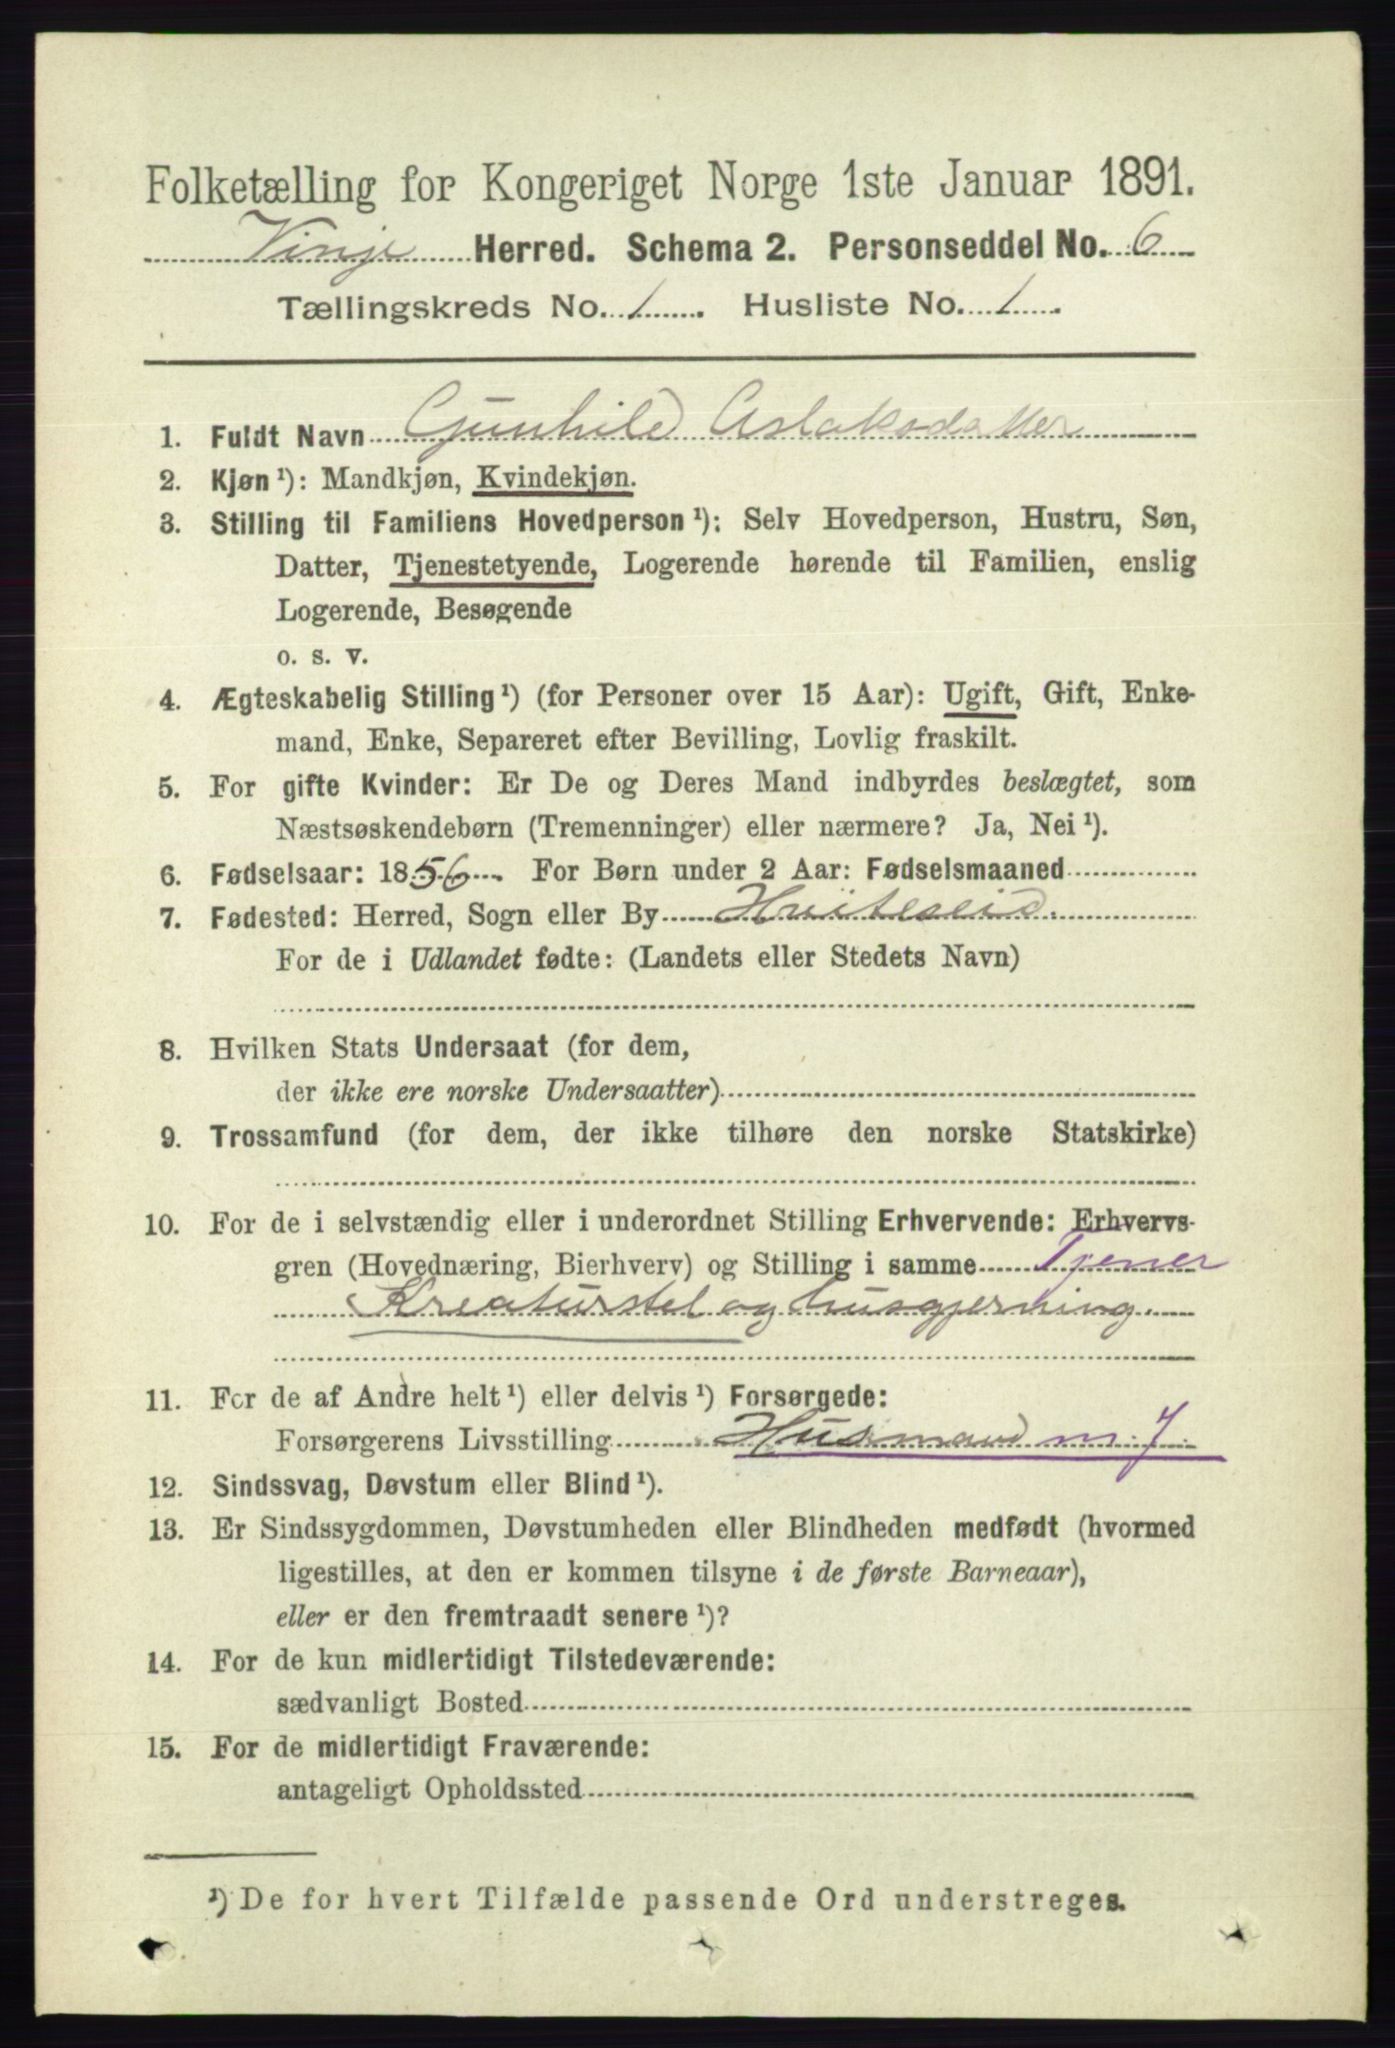 Folketælling for Kongeriget Norge 1ste Januar 1891.
Vinje Herred. Schema 2. Personseddel No. 6
Tællingskreds No. 1. Husliste No. 1.
1. Fuldt Navn Gunhild Aslaksdatter
2. Kjøn ¹): Mandkjøn, Kvindekjøn.
3. Stilling til Familiens Hovedperson ¹): Selv Hovedperson, Hustru, Søn,
Datter, Tjenestetyende, Logerende hørende til Familien, enslig
Logerende, Besøgende
o. s. v.
4. Ægteskabelig Stilling ¹) (for Personer over 15 Aar): Ugift, Gift, Enke-
mand, Enke, Separeret efter Bevilling, Lovlig fraskilt.
5. For gifte Kvinder: Er De og Deres Mand indbyrdes beslægtet, som
Næstsøskendebørn (Tremenninger) eller nærmere? Ja, Nei ¹).
6. Fødselsaar: 1856. For Børn under 2 Aar: Fødselsmaaned
7. Fødested: Herred, Sogn eller By Hviteseid.
For de i Udlandet fødte: (Landets eller Stedets Navn)
8. Hvilken Stats Undersaat (for dem,
der ikke ere norske Undersaatter)
9. Trossamfund (for dem, der ikke tilhøre den norske Statskirke)
10. For de i selvstændig eller i underordnet Stilling Erhvervende: Erhvervs-
gren (Hovednæring, Bierhverv) og Stilling i samme Tjener
Kreaturstel og husgjerning.
11. For de af Andre helt ¹) eller delvis ¹) Forsørgede:
Forsørgerens Livsstilling Husmand m. J.
12. Sindssvag, Døvstum eller Blind ¹).
13. Er Sindssygdommen, Døvstumheden eller Blindheden medfødt (hvormed
ligestilles, at den er kommen tilsyne i de første Barneaar),
eller er den fremtraadt senere ¹)?
14. For de kun midlertidigt Tilstedeværende:
sædvanligt Bosted
15. For de midlertidigt Fraværende:
antageligt Opholdssted
¹) De for hvert Tilfælde passende Ord understreges.